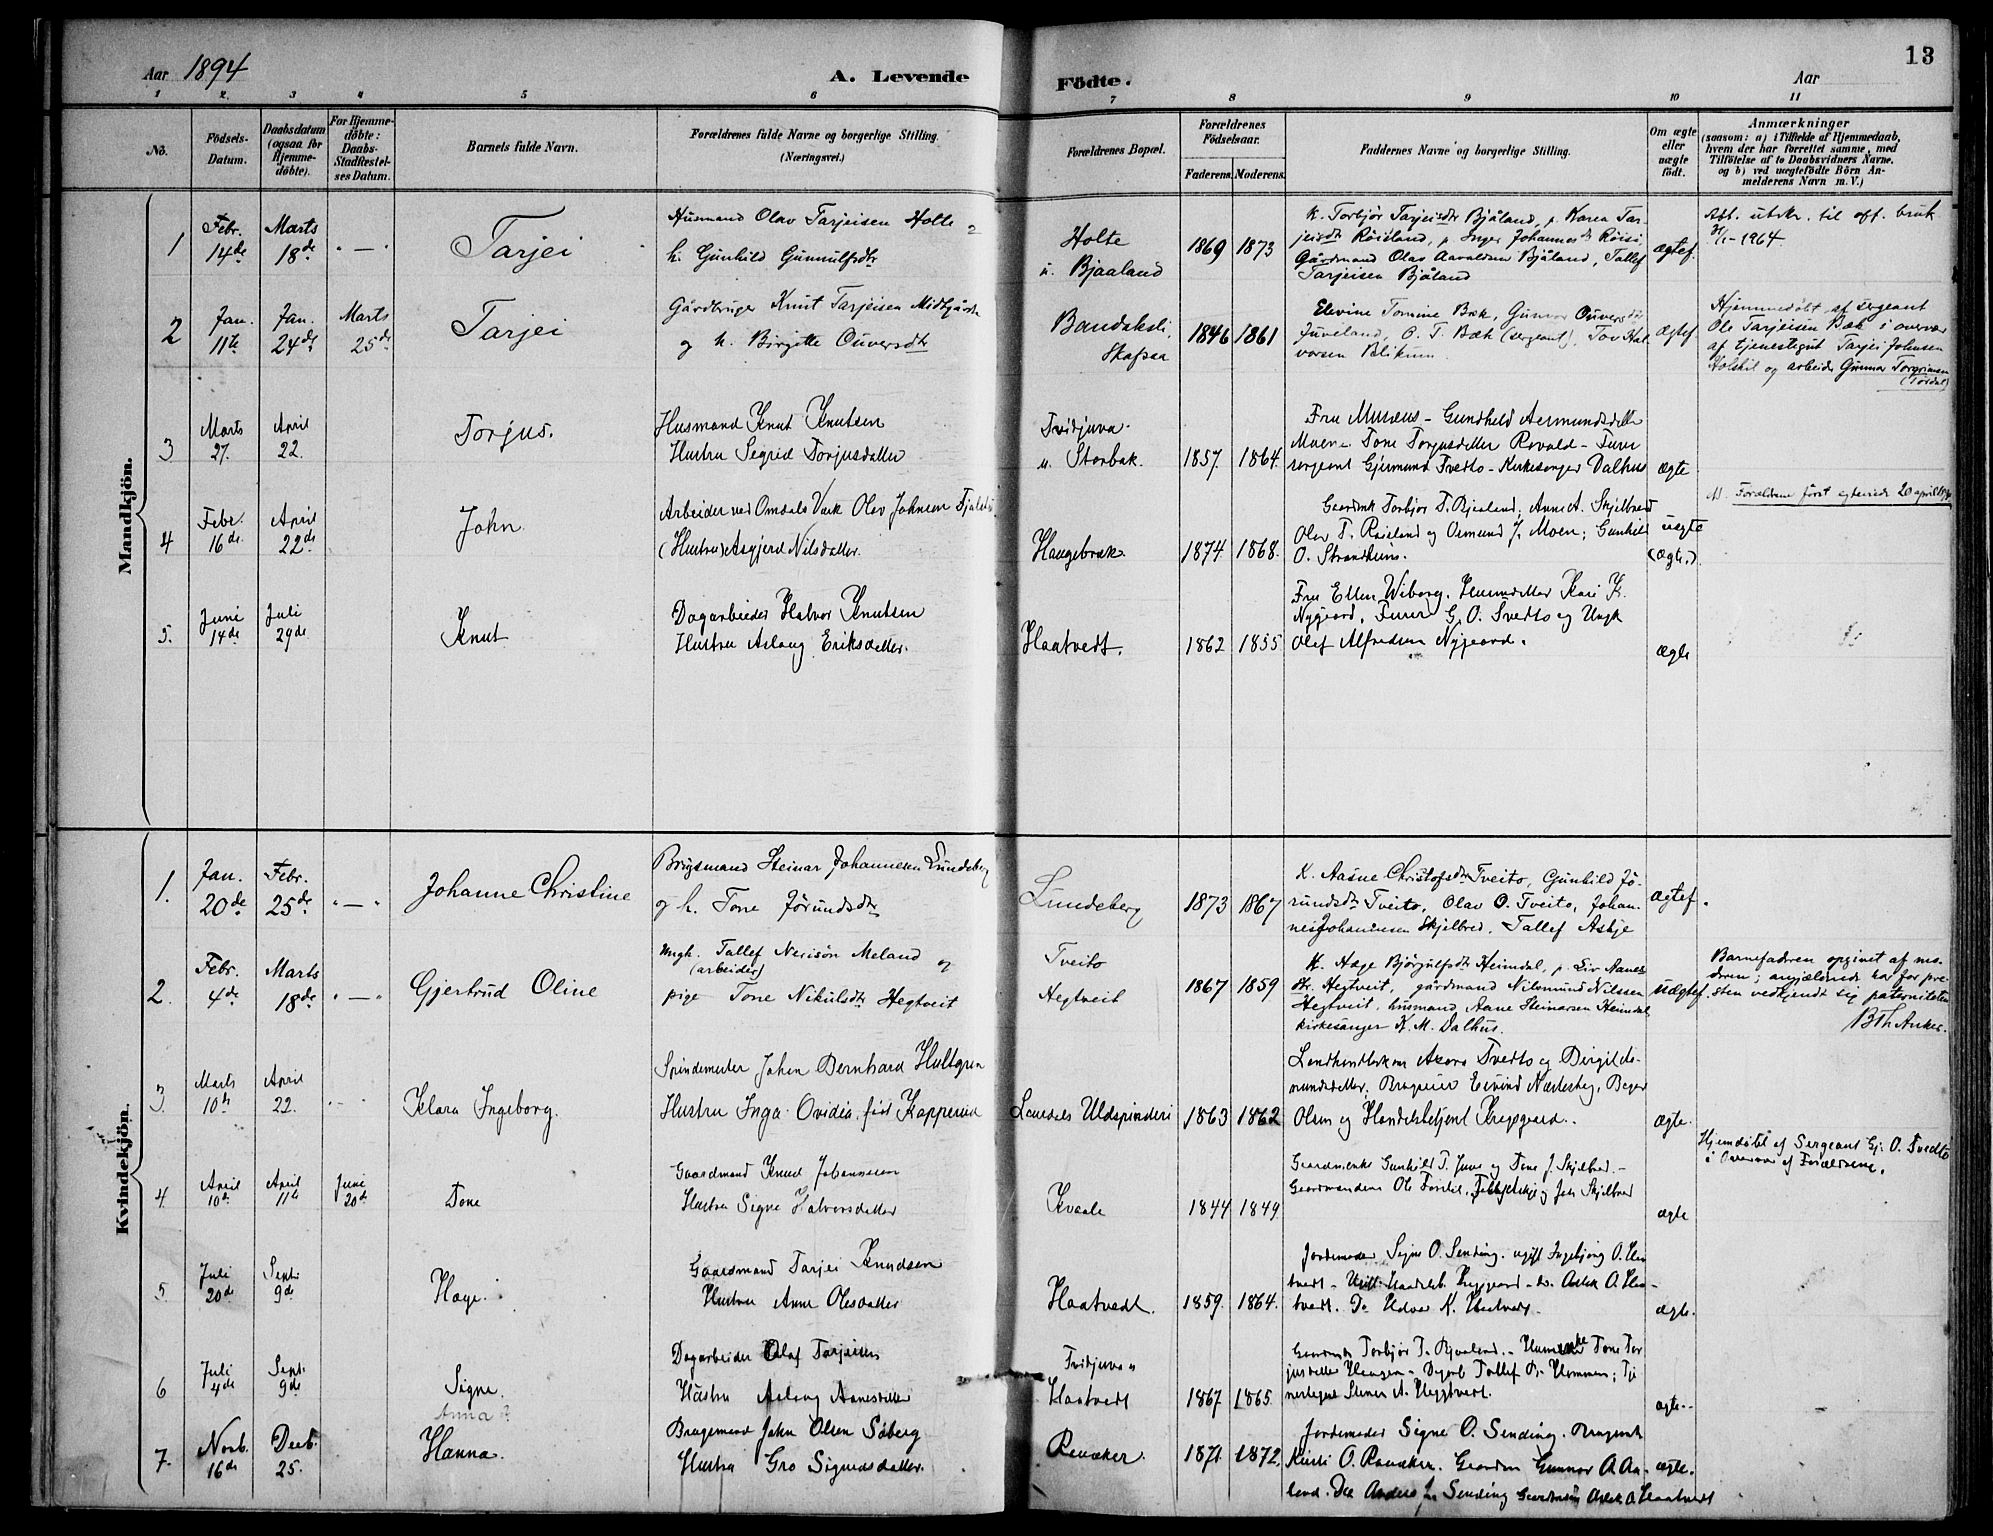 Aar 1894
A. Levende Födte.
Aar
13
1 2. 3 4 5 6 7 8 9 10 11
No.
Födsels-Datum.
Daabsdatum (ogsaa for Hjemme-døbte).
For Hjemme-døbte: Daabs-Stadfæstel-ses Datum.
Barnets fulde Navn.
Forældrenes fulde Navne og borgerlige Stilling. (Næringsvei.)
Forældrenes Bopæl.
Forældrenes Födselsaar.
Faderens. Moderens.
Faddernes Navne og borgerlige Stilling.
Om ægte eller uægte født.
Anmærkninger
(saasom: a) i Tilfælde af Hjemmedaab, hvem der har forrettet samme, med Tilföielse af to Daabsvidners Navne. og b) ved uægtefödte Börn An-melderens Navn m. V.)
Mandkjön.
1 Febr. 14de Marts 18de " — " Tarjei
Husmand Olav Tarjeisen Holte
h. Gunhild Gunnulfsdtr
Holte
u. Bjaaland
1869 1873
k. Torbjør Tarjeisdtr Bjåland, p. Karen Tar-
jeisdtr Røisland, p. Inger Johannesdtr
Gårdmand Olav Aavaldsen Bjåland, Tallef
Tarjeisen Bjåland
ægtef.
Att. utskr. til off. bruk
1964
2 Jan. 11te Jan. 24de Marts 25de Tarjei
Gårdbruger Knut Tarjeisen Midtgården
og h. Birgitte Ouversdtr
Bandaksli
Skafsaa
1846 1861
Elevine Tomine Bæk, Gunvor Ouversdtr
Juveland, O. T. Bæk (sergeant), Tov Hal-
vorsen Blikum.
ægtef.
Hjemmedøbt af sergeant
Ole Tarjeisen Bæk i overvær
af tjenestegut Tarjei Johnsen
og arbeider Gunnar Torgrimsen
(Tordal)
3 Marts 27. April 22. Torjus.
Husmand Knut Knutsen
Hustru Sigrid Torjusdatter
Tvidjuva
u. Storbæk.
1857. 1864.
Fru Musæus - Gundhild Aasmundsdatter
Moen - Tone Torjusdatter Rovald - Furer
sergeant Gjermund Tvedto - Kirkesanger Dalhus
ægte
4 Febr. 16de April 22de John.
Arbeider ved Omdals Værk Olav Johnsen
(Hustru) Asgjerd Nilsdatter
Haugebræk.
1874. 1868.
Torbjør T. Bjaaland; Anne A. Skjelbred
Olav T. Røisland og Osmund J. Moen; Gunhild
O. Strandheim.
uægte
(ægte.)
Forældrene først egteviede 20 april
5. Juni 14de Juli 29de Knut
Dagarbeider Halvor Knutsen
Hustru Aslaug Eriksdatter.
Haatvedt.
1862 1855
Fru Ellen Wiborg, Kari K.
Nygaard, Furer G. O. Tvedto og Ungk
Olaf Alfredsen Nygaard.
ægte
Kvindekjön.
1. Jan. 20de Febr. 25de " — " Johanne Christine
Brugsmand Steinar Johannesen Lundeberg
og h. Tone Jørundsdtr
Lundeberg
1873 1867
K. Aasne Christofsdtr Tveito, Gunhild Jø-
rundsdtr Tveito, Olav O. Tveito, Johan-
nes Johannesen Skjelbred, Tallef Askje
ægtef.
2. Febr. 4de Marts 18de " — " Gjertrud Oline
Ungk. Tallef Nerisøn Meland og
(arbeider)
pige Tone Nikulsdtr Hegtveit
Tveito
Hegtveit
1867 1859
K. Hæge Bjørgulfsdtr Heimdal, p. Liv Aanes-
dtr. Hegtveit, gårdmand Nilsmund Nilssen
Hegtveit, husmand Aane Steinarsen Heimdal,
kirkesanger K. M. Dalhus.
uægtef.
Barnefaderen opgivet af mo-
deren; angjældende har for pre-
sten vedkjendt sig paterniteten
B Th Anker.
3. Marts 10de April 22. Klara Ingeborg.
Spindemester John Bernhard Hultgren
Hustru Inga Ovidia født Kapperud
Uldspinderi
1863 1862
Landhandlerkone Tvedto og Birgit As-
mundsdatter. Eivind Næstestog, Birger
Olsen og Handelsbetjent Krøgaard.
ægte.
4. April 10de April 11te Juni 20de Tone
Gaardmand Knud Johannesen
Hustru Signe Halvorsdatter
Kvaale
1844 1849
Gunhild T. Juve og Tone J. Skjelbred -
Gaardmændene Ole og Joh. Skjelbred
ægte
Hjemdøbt af Sergeant Gj. O. Tvedto
i Overvær af Forældrene.
5. Juli 20de Sept. 9de Hæge.
Gaardmand Tarjei Knudsen
Hustru Anne Olesdatter
Haatvedt.
1859. 1864.
Jordemoder Signe O. Sending. ugift Ingebjørg O. Haa-
tvedt - Krøgaard - do. Aslak O. Haa-
tvedt. Do Halvor K. Haatvedt.
ægte.
6 Juli 4de Sept. 9de Signe.
Dagarbeider Olaf Tarjeisen
Hustru Aslaug Aanesdatter
Tvidjuva u
Haatvedt
1867. 1865.
Torbjør T. Bjaaland. - Tone Tor-
jusdatter Haugen - Tallef Hommen; Tje-
nestegut Steinar A. Heggtveit.
ægte.
Anna?
7. Novb. 16de Decb. 25. Hanna.
Brugsmand John Olsen Søberg
Hustru Gro Sigurdsdatter.
Revåker.
1871. 1872.
Jordemoder Signe O. Sending.
Kristi O. Revåker. Gunnar A. Aa-
land. Anders J. Sending Aslak O. Haatvedt
ægte.